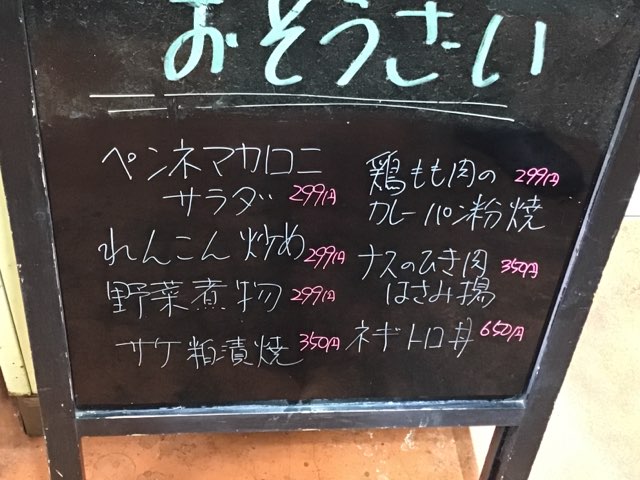 おそうざい
ペンネマカロニ
サラダ 299円
れんこん炒め 299円
野菜煮物 299円
サケ粕漬焼 350円
鶏もも肉の 299円
カレーパン粉焼
ナスのひき肉 350円
はさみ揚
ネギトロ丼 650円